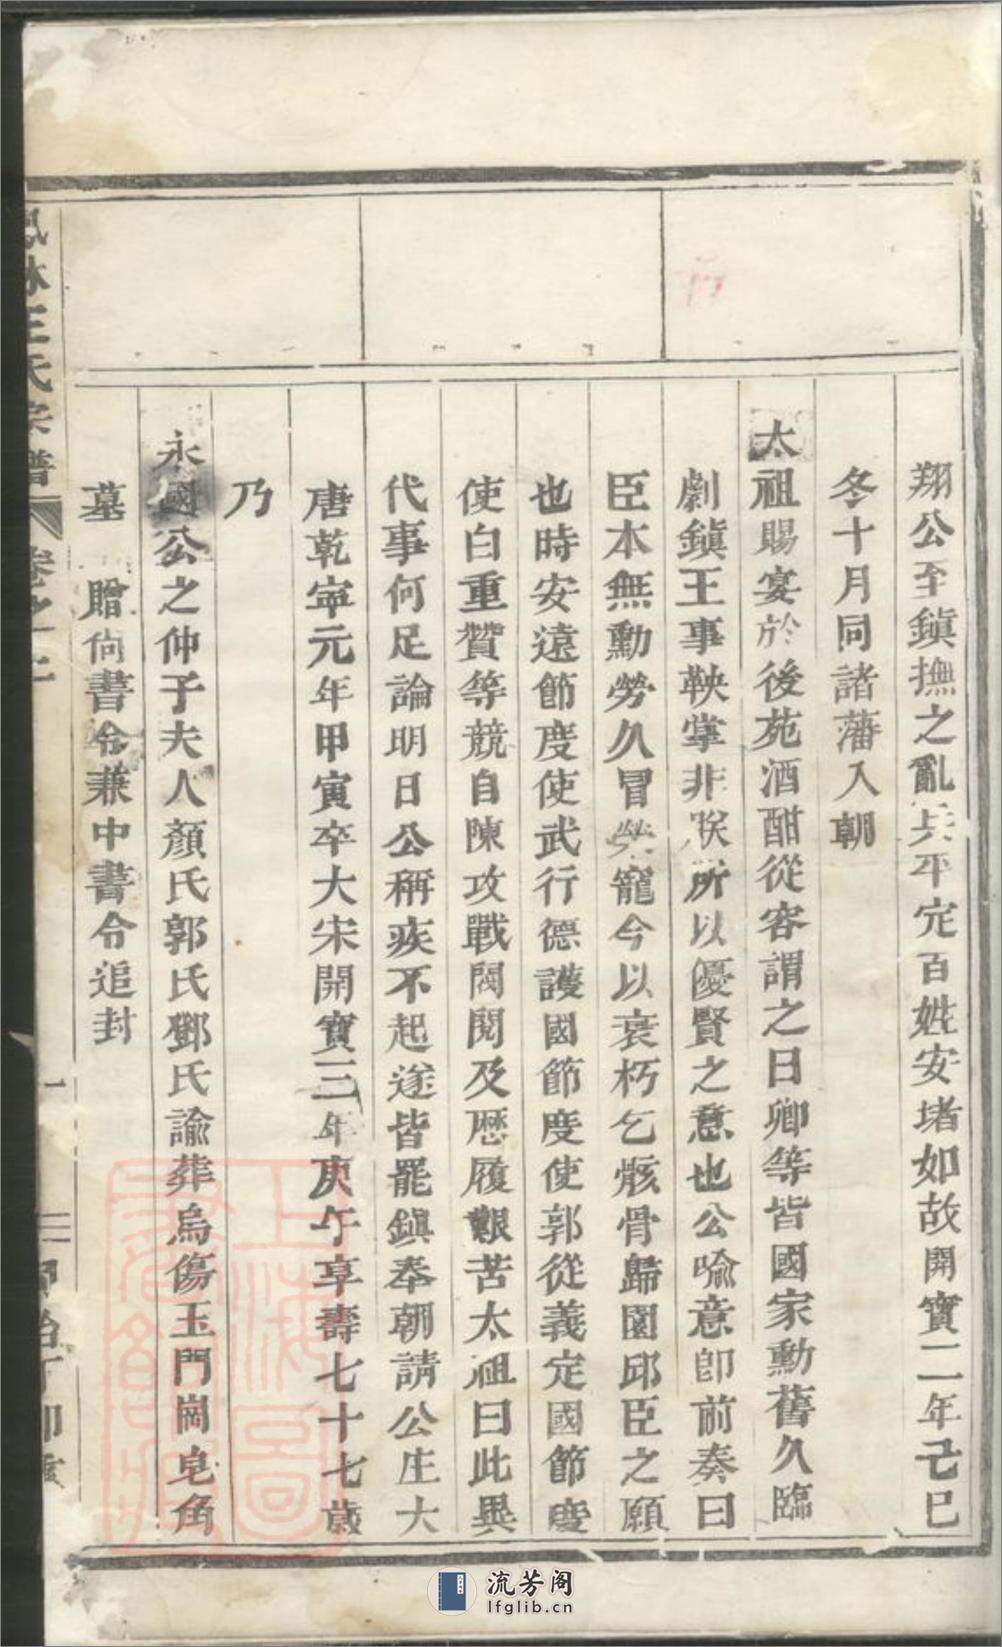 翔公至鎭撫之亂兵平定百姓安堵如故開寶二年己巳
冬十月同諸藩入朝
太祖賜宴於後苑酒酣從容謂之曰卿等皆國家勳舊久臨
劇鎭王事鞅掌非朕所以優賢之意也公喻意卽前奏曰
臣本無勳勞久冒榮寵今以衰朽乞骸骨歸園邱臣之願
也時安遠節度使武行德護國節度使郭從義定國節度
使白重贊等競自陳攻戰閥閱及歷履艱苦太祖曰此異
代事何足論明日公稱疾不起遂皆罷鎭奉朝請公庄大
唐乾寧元年甲寅卒大宋開寶三年庚午享壽七十七歲
乃
永國公之仲子夫人顏氏郭氏鄧氏諭葬烏傷玉門崗皂角
墓 贈尙書令兼中書令追封
鳳林王氏宗譜 卷之一上 一 同治丁卯重
上海圖書館藏
流芳阁
lfglib.cn